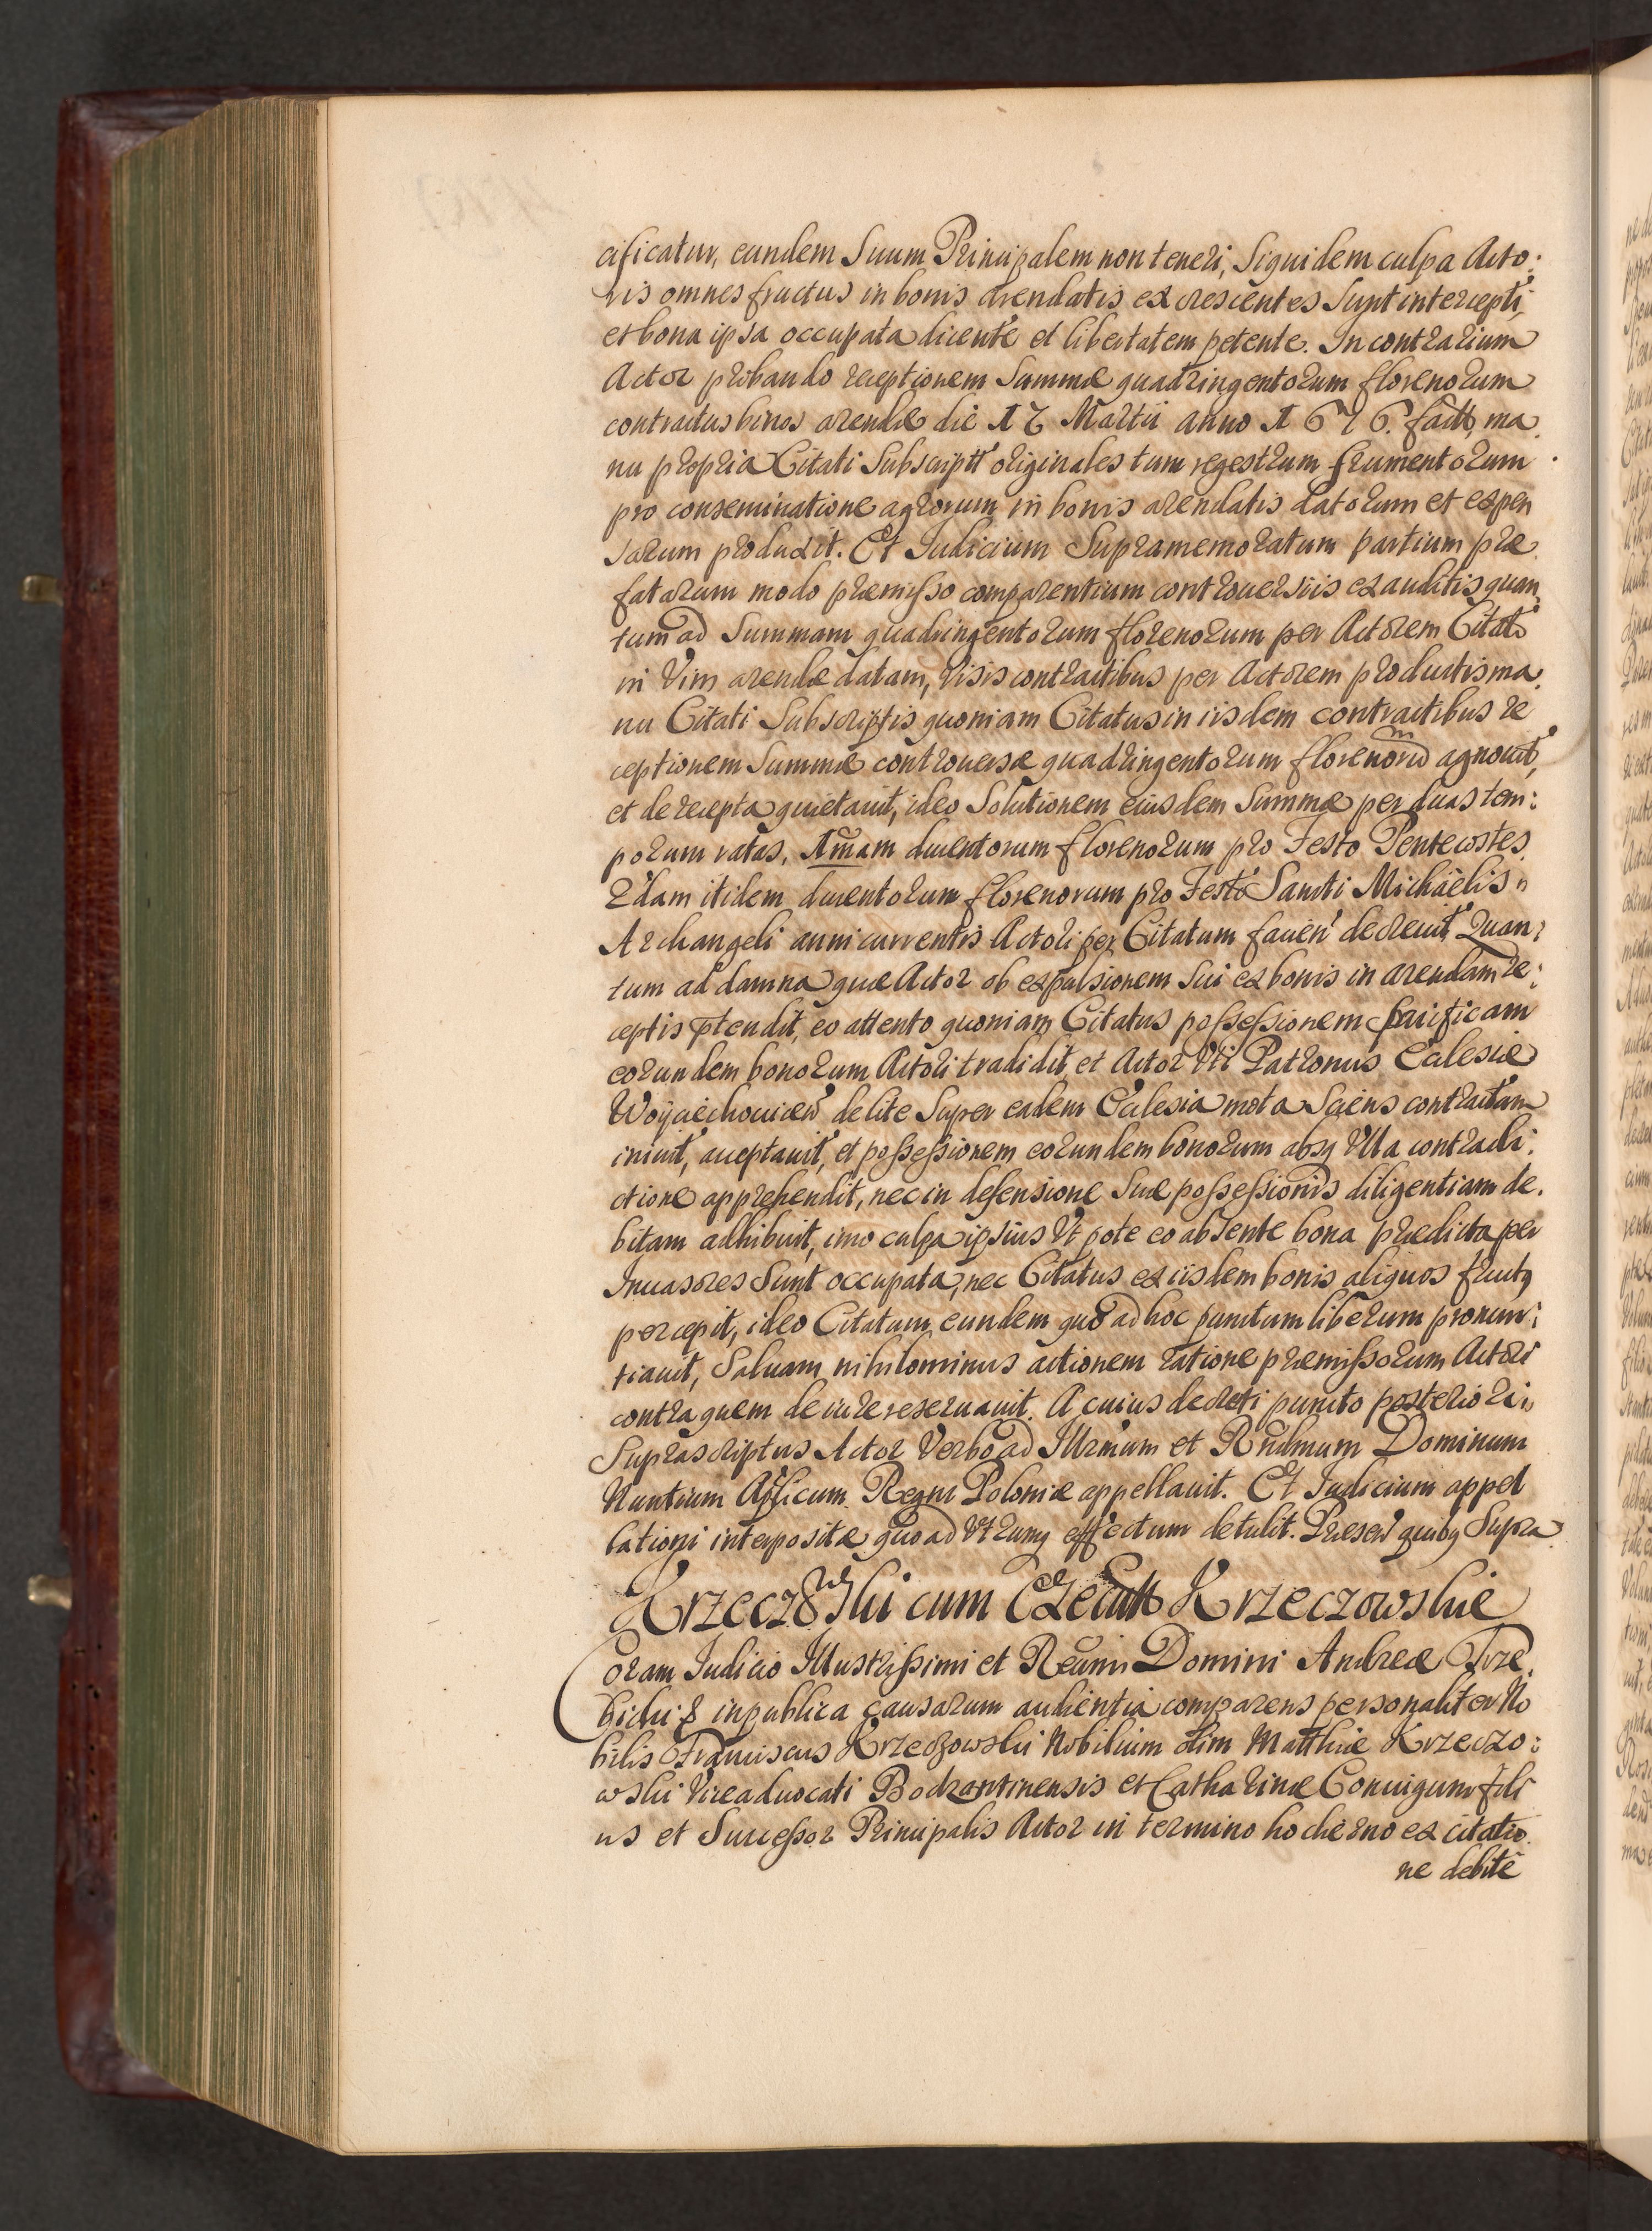 cificatur, eundem Suum Principalem non teneri, Siquidem culpa Acto:
ris omnes fructus in bonis arendatis excrescentes Sunt intercepti,
et bona ipsa occupata dicente et libertatem petente. In contrarium
Actor probando receptionem Summæ quadringentorum florenorum
contractus binos arendæ die 17 Martii anno 1676. fact, ma
nu propria Citati Subscriptt originales tum regestrum frumentorum
pro conseminatione agrorum in bonis arendatis datorum et expen
sarum produxit. Et Iudicium Supramemoratum partium præ
fatarum modo præmisso comparentium controuersiis exauditis quan
tum ad Summam quadringentorum florenorum per Actorem Citato
in Vim arendæ datam, Visis contractibus per Actorem productis ma
nu Citati Subscriptis quoniam Citatus in iisdem contractibus re
ceptionem Summæ controuersæ quadringentorum florenorum agnouit,
et de recepta quietauit, ideo Solutionem eiusdem Summæ per duas tem:
porum ratas, 1mam ducentorum florenorum pro Festo Pentecostes
2dam itidem ducentorum florenorum pro Festo Sancti Michaëlis
Archangeli anni currentis Actori per Citatum facien decreuit Quan:
tum ad damna quæ Actor ob expulsionem Sui ex bonis in arendam re:
ceptis ptendit, eo attento quoniam Citatus possessionem pacificam
eorundem bonorum Actori tradidit et Actor Vti Patronus Ecclesiæ
Woyciechouicen de lite Super eadem Ecclesia mota Sciens contractum
iniuit, acceptauit, et possessionem eorundem bonorum absq Vlla contradi:
ctione apprehendit, nec in defensione Suæ possessionis diligentiam de
bitam adhibuit, imo culpa ipsius Vt pote eo absente bona prædicta per
Inuasores Sunt occupata, nec Citatus ex iisdem bonis aliquos fruct9
percepit, ideo Citatum eundem quo ad hoc punctum liberum pronun:
tiauit, Saluam nihilominus actionem ratione præmissorum Actori
contra quem de iure reseruauit. A cuius decreti puncto posteriori
Suprascriptus Actor Verbo ad Illrmum et Rndmum Dominum
Nuntium Aplicum Regni Poloniæ appellauit. Et Iudicium appel
lationi interpositæ quo ad Vtrumq effectum detulit. Præsen quibq Supra
Krzeczowski cum Execut Krzeczowskie
Coram Iudicio Illustrissimi et Reumi Domini Andreæ Trze
bicki & in publica causarum audientia comparens personaliter No
bilis Franciscus Krzeczowski Nobilium olim Matthiæ Krzeczo:
wski Viceaduocati Bodzantinensis et Catharinæ Coniugum fili
us et Successor Principalis Actor in termino hodierno ex citatio
ne debite